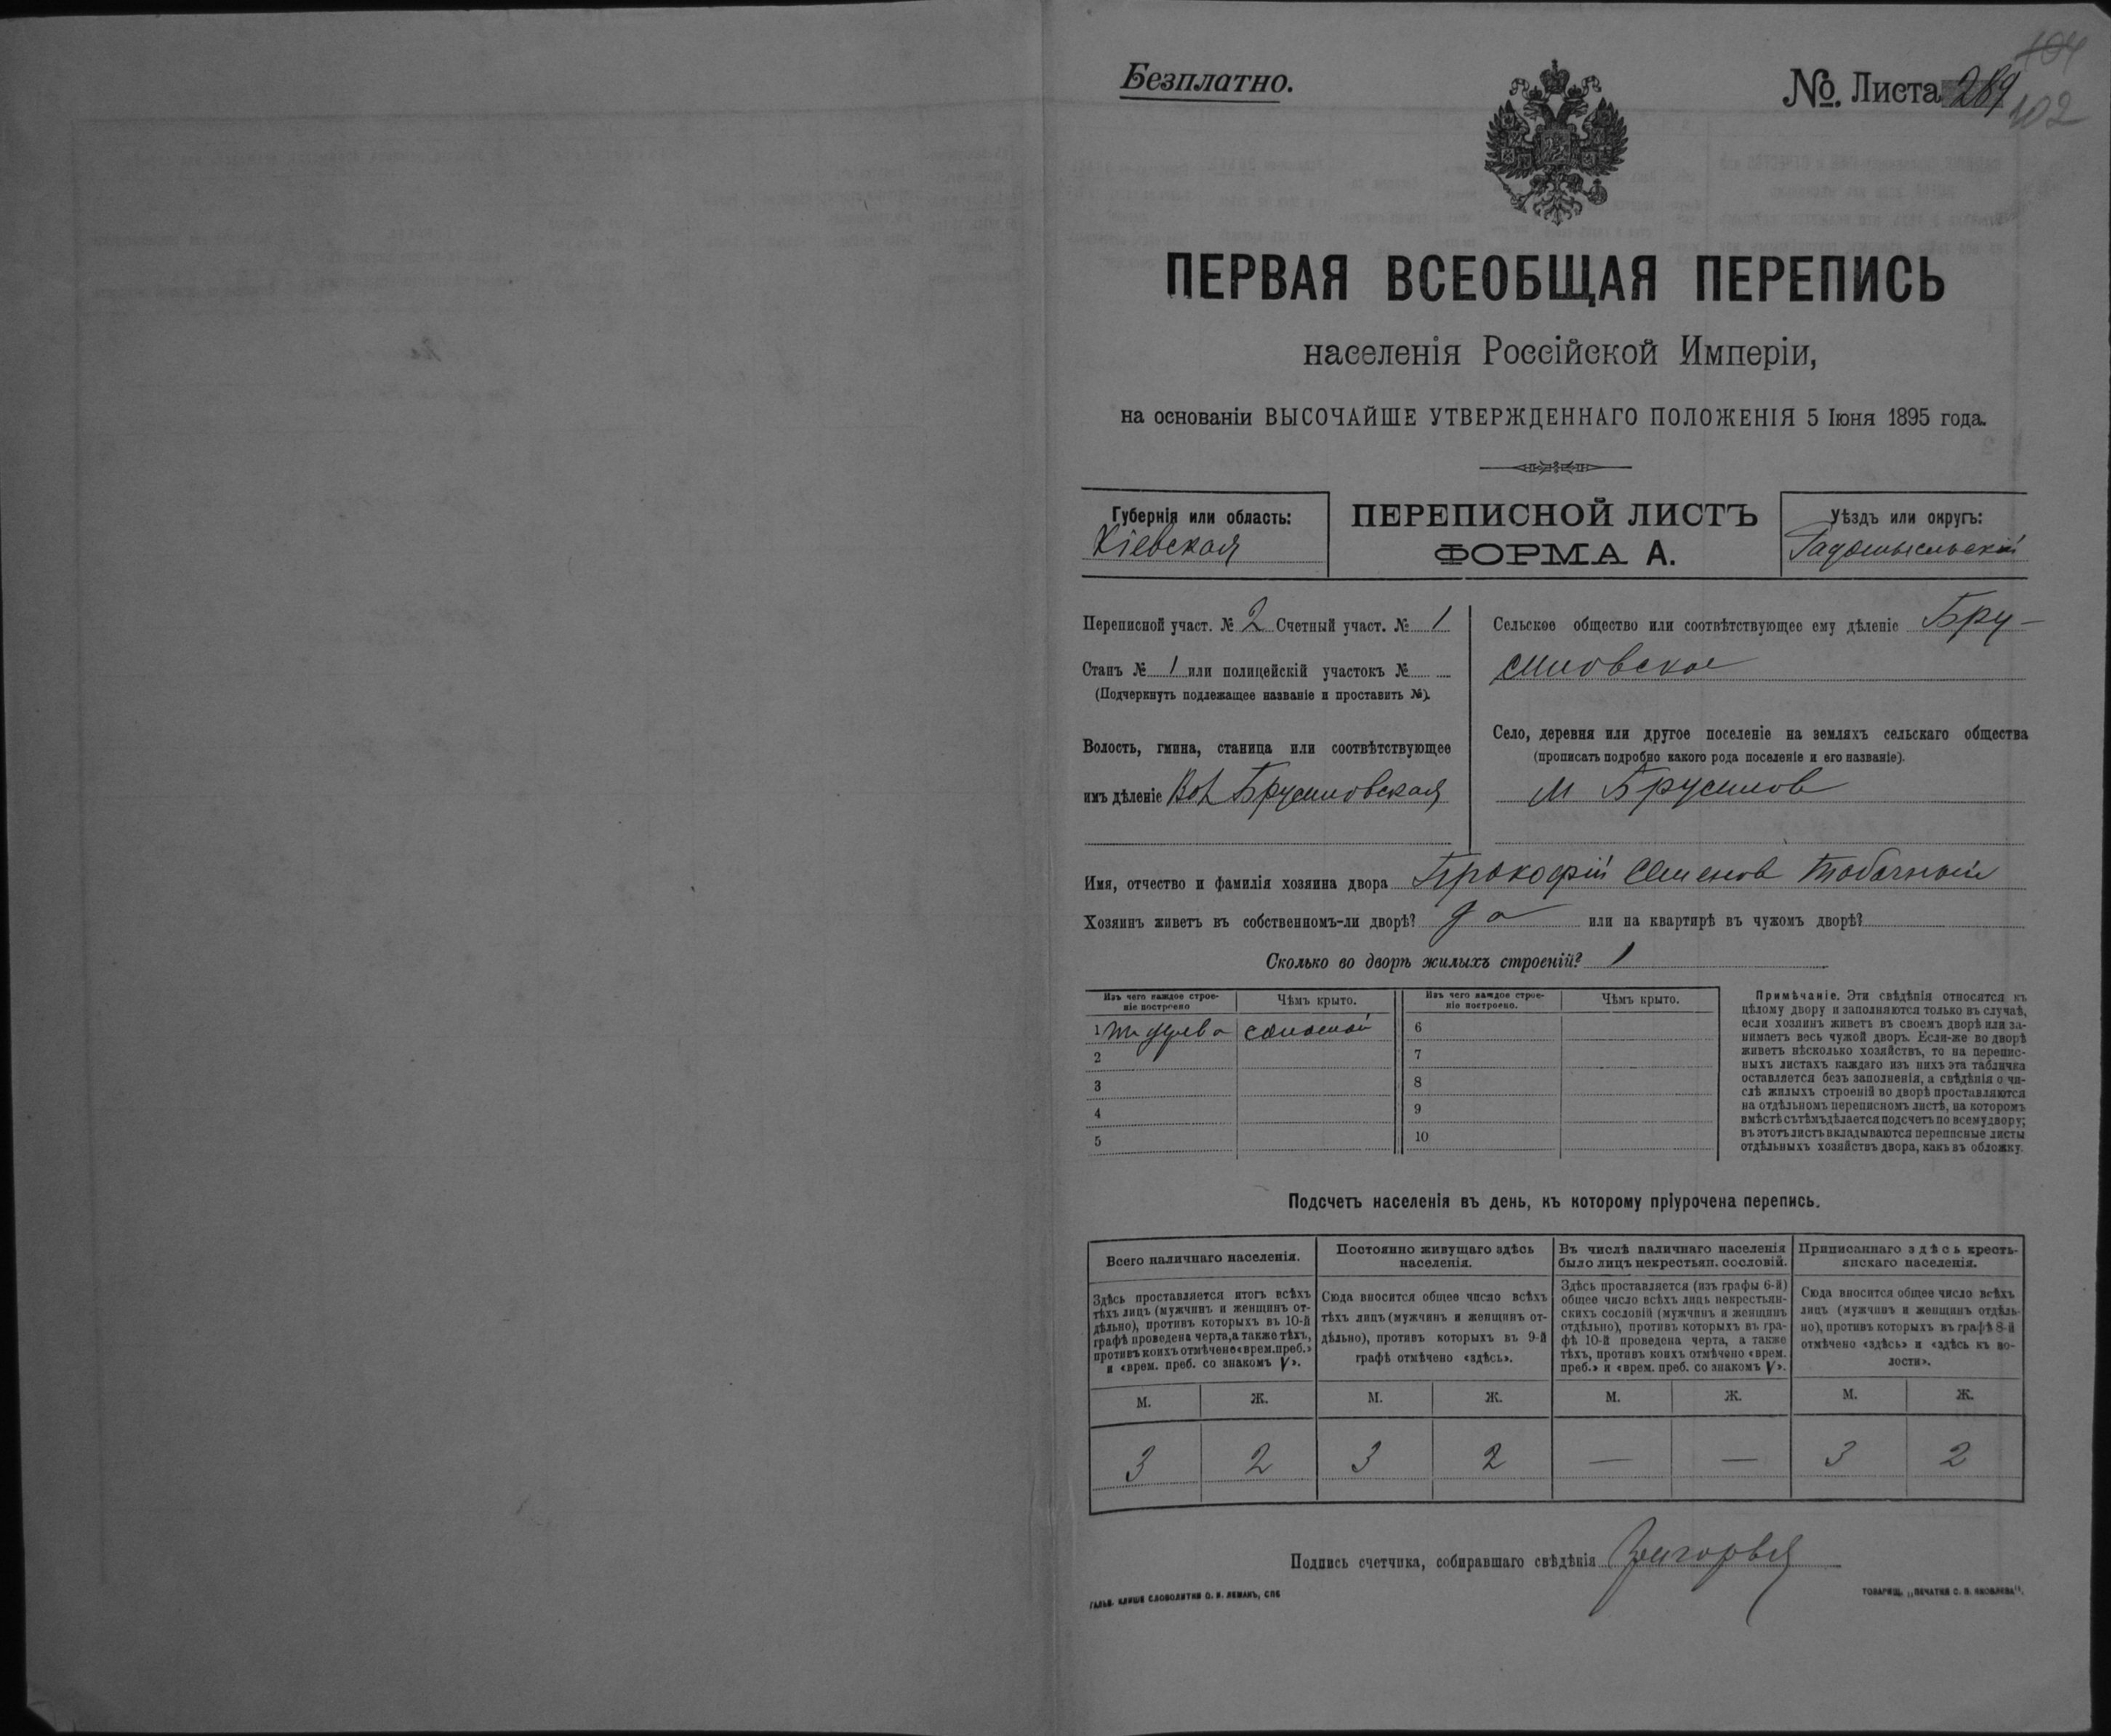 Безплатно.
№ Листа 289
104
102
ПЕРВАЯ ВСЕОБЩАЯ ПЕРЕПИСЬ
населенія Россійской Имперіи,
на основаніи ВЫСОЧАЙШЕ УТВЕРЖДЕННАГО ПОЛОЖЕНІЯ 5 Іюня 1895 года.
Губернія или область:
Кіевская
ПЕРЕПИСНОЙ ЛИСТЪ
ФОРМА А.
Уѣздъ или округъ:
Радомысльскій
Переписной участ. № 2 Счетный участ. № 1
Станъ № 1 или полицейскій участокъ №
(Подчеркнуть подлежащее названіе и проставить №).
Волость, гмина, станица или соотвѣтствующее
имъ дѣленіе Вол Брусиловская
Сельское общество или соотвѣтствующее ему дѣленіе Бру-
силовское
Село, деревня или другое поселеніе на земляхъ сельскаго общества
(прописать подробно какого рода поселеніе и его названіе).
м Брусилов
Имя, отчество и фамилія хозяина двора Прокофій Семенов Табачный
Хозяинъ живетъ въ собственномъ-ли дворѣ? да или на квартирѣ въ чужомъ дворѣ?
Сколько во дворѣ жилыхъ строеній? 1
Изъ чего каждое строе-
ніе построено
Чѣмъ крыто.
Изъ чего каждое строе-
ніе построено.
Чѣмъ крыто.
1 дерева соломой
2
3
4
5
6
7
8
9
10
Примѣчаніе. Эти свѣдѣнія относятся къ
цѣлому двору и заполняются только въ случаѣ,
если хозяинъ живетъ въ своемъ дворѣ или за-
нимаетъ весь чужой дворъ. Если-же во дворѣ
живетъ нѣсколько хозяйствъ, то на перепис-
ныхъ листахъ каждаго изъ нихъ эта табличка
оставляется безъ заполненія, а свѣдѣнія о чи-
слѣ жилыхъ строеній во дворѣ проставляются
на отдѣльномъ переписномъ листѣ, на которомъ
вмѣстѣ съ тѣмъ дѣлается подсчетъ по всему двору;
въ этотъ листъ вкладываются переписные листы
отдѣльныхъ хозяйствъ двора, какъ въ обложку.
Подсчетъ населенія въ день, къ которому пріурочена перепись.
Всего наличнаго населенія.
Здѣсь проставляется итогъ всѣхъ
тѣхъ лицъ (мужчинъ и женщинъ от-
дѣльно), противъ которыхъ въ 10-й
графѣ проведена черта, а также тѣхъ,
противъ коихъ отмѣчено «врем. преб.»
и «врем. преб. со знакомъ V».
Постоянно живущаго здѣсь
населенія.
Сюда вносится общее число всѣхъ
тѣхъ лицъ (мужчинъ и женщинъ от-
дѣльно), противъ которыхъ въ 9-й
графѣ отмѣчено «здѣсь».
Въ числѣ наличнаго населенія
было лицъ некрестьян. сословій.
Здѣсь проставляется (изъ графы 6-й)
общее число всѣхъ лицъ некрестьян-
скихъ сословій (мужчинъ и женщинъ
отдѣльно), противъ которыхъ въ гра-
фѣ 10-й проведена черта, а также
тѣхъ, противъ коихъ отмѣчено «врем.
преб.» и «врем. преб. со знакомъ V».
Приписаннаго здѣсь кресть-
янскаго населенія.
Сюда вносится общее число всѣхъ
лицъ (мужчинъ и женщинъ отдѣль-
но), противъ которыхъ въ графѣ 8-й
отмѣчено «здѣсь» и «здѣсь къ во-
лости».
М. Ж. М. Ж. М. Ж. М. Ж.
3 2 3 2 — — 3 2
Подпись счетчика, собиравшаго свѣдѣнія
ГАЛЬВ. КЛИШЕ СЛОВОЛИТНИ О. И. ЛЕМАНЪ, СПБ
ТОВАРИЩ. „ПЕЧАТНЯ С. П. ЯКОВЛЕВА“.